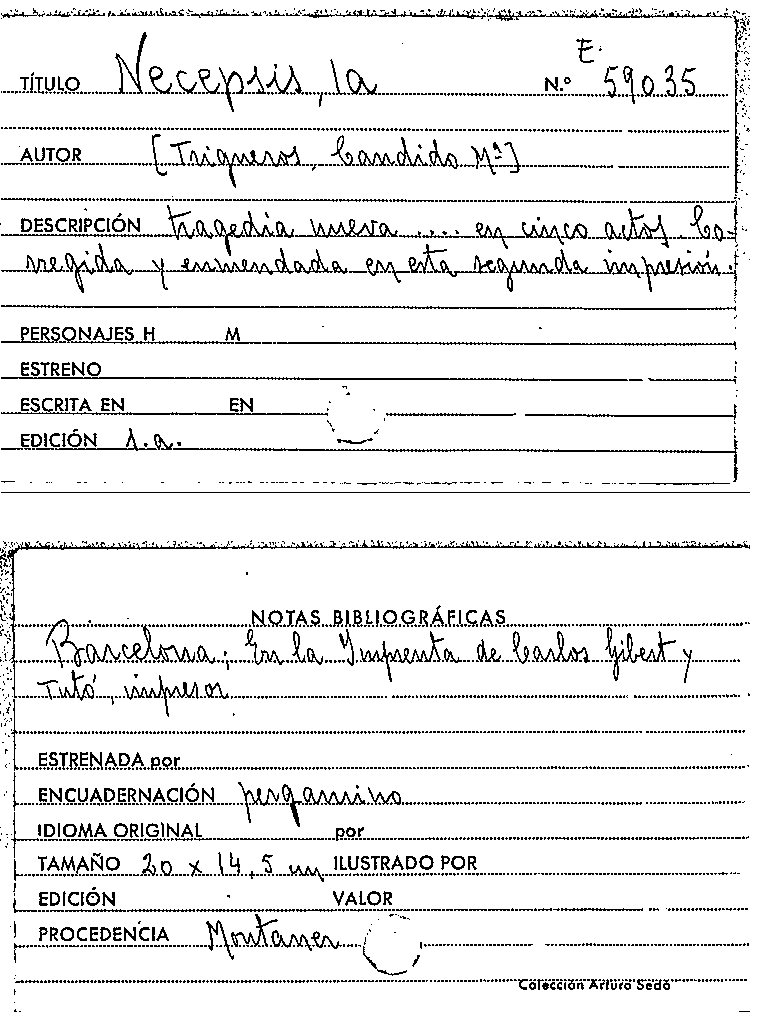 E.
TÍTULO Necepsis, la N.º 59035
AUTOR [Trigueros, Candido Mª]
DESCRIPCIÓN tragedia nueva .... en cinco actos. Co-
rregida y enmendada en esta segunda impresión.
PERSONAJES H M
ESTRENO
ESCRITA EN EN
EDICIÓN s.a.
NOTAS BIBLIOGRÁFICAS
Barcelona; En la Imprenta de Carlos Gibert y
Tutó, impresor
ESTRENADA por
ENCUADERNACIÓN pergamino
IDIOMA ORIGINAL por
TAMAÑO 20 x 14,5 cm ILUSTRADO POR
EDICIÓN VALOR
PROCEDENCIA Montaner
Colección Arturo Sedó